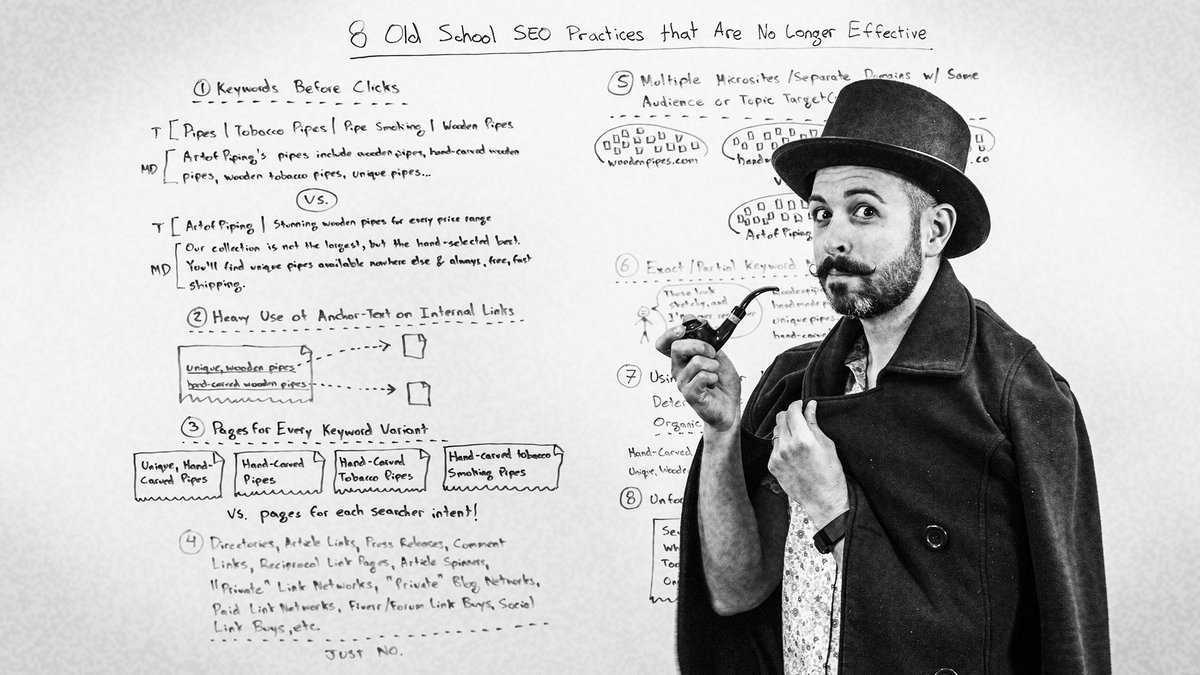 8 Old School SEO Practices that Are No Longer Effective
① Keywords Before Clicks
T [ Pipes | Tobacco Pipes | Pipe Smoking | Wooden Pipes
MD [ Art of Piping's pipes include wooden pipes, hand-carved wooden
pipes, wooden tobacco pipes, unique pipes...
VS.
T [ Art of Piping | Stunning wooden pipes for every price range
MD [ Our collection is not the largest, but the hand-selected best.
You'll find unique pipes available nowhere else & always, free, fast
shipping.
② Heavy Use of Anchor-Text on Internal Links
Unique, wooden pipes
hand-carved wooden pipes
③ Pages for Every Keyword Variant
Unique, Hand-
Carved Pipes
Hand-Carved
Pipes
Hand-Carved
Tobacco Pipes
Hand-Carved tobacco
Smoking Pipes
VS. pages for each searcher intent!
④ Directories, Article Links, Press Releases, Comment
Links, Reciprocal Link Pages, Article Spinners,
"Private" Link Networks, "Private" Blog Networks,
Paid Link Networks, Fiverr/Forum Link Buys, Social
Link Buys, etc.
JUST NO.
⑤ Multiple Microsites / Separate Domains w/ Same
Audience or Topic Target
woodenpipes.com
.co
Art of Piping
⑥ Exact/Partial Keyword
Those look
sketchy, and
handmade
unique pipes.
⑦
Organic
Hand-Carved
Unique,
⑧